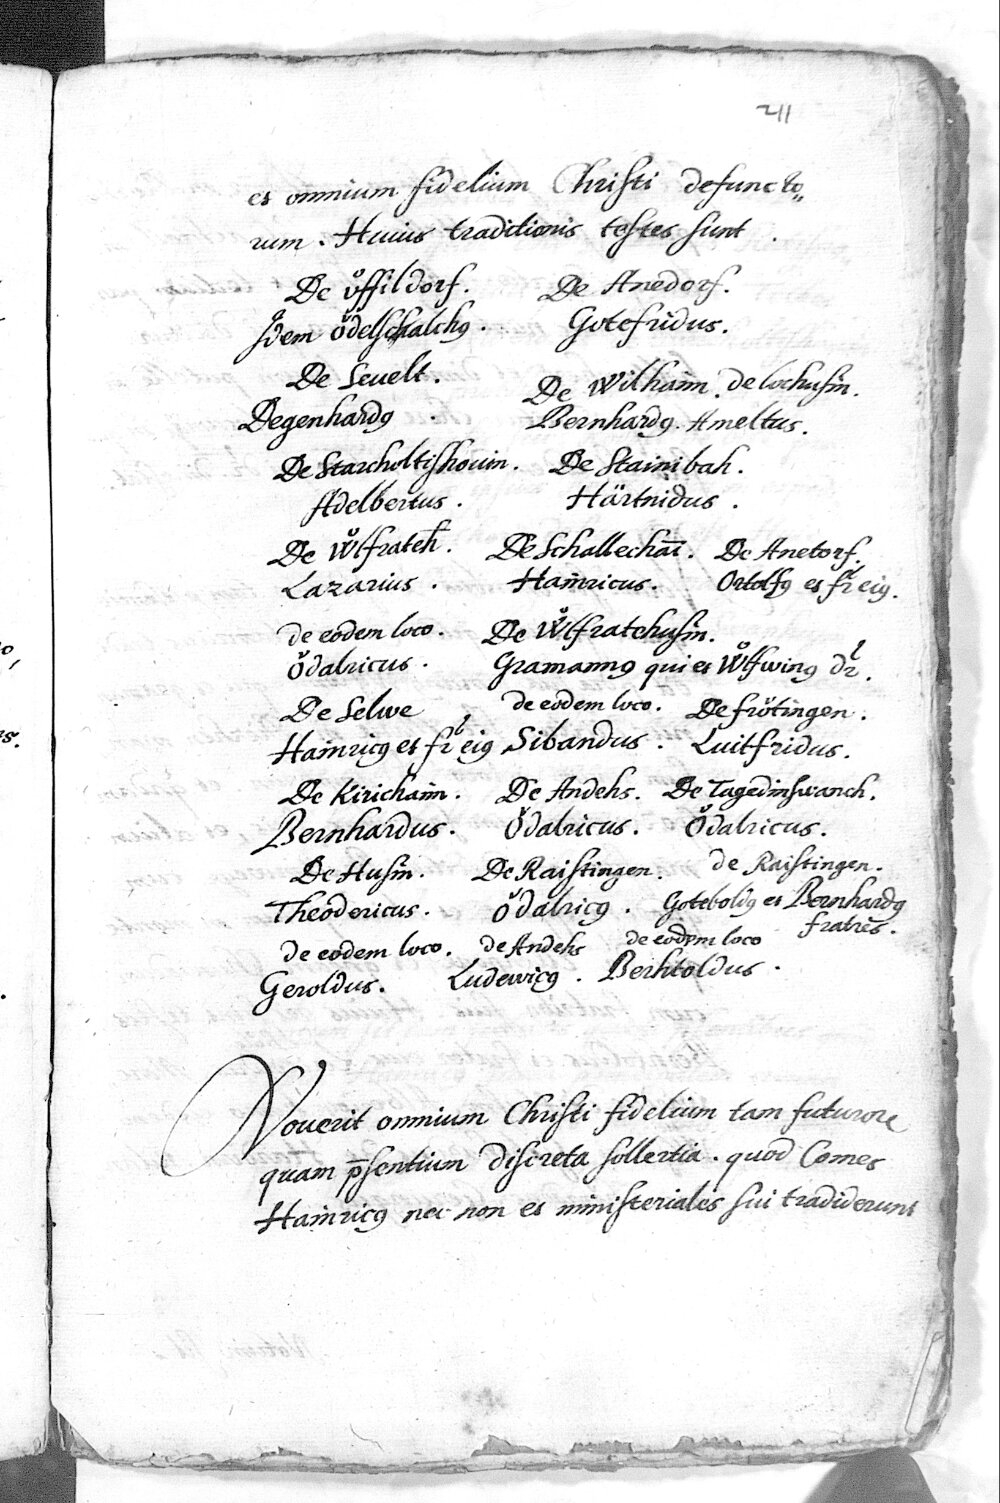 211
et omnium fidelium Christi defuncto„
rum. Huius traditionis testes sunt.
De Vͦffildorf. De Anedorf.
Idem Oͮdelschalchꝰ. Gotefridus.
De Seuelt. De Wilhaim. de lochusin.
Degenhardꝰ. Bernhardꝰ. Ameltus.
De Starcholtishouin. De Stainibah.
Adelbertus. Härtnidus.
De Wͦlfrateh̄. De Schallechaī. De Anetorf.
Lazarius. Hainricus. Ortolfꝰ et fr̄ eiꝰ.
de eodem loco. De Wͦlfratehusin.
Oͮdalricus. Gramannꝰ qui et Wͦlfwinꝰ dr̄.
De Selwe de eodem loco. De frötingen.
Hainricꝰ et fr̄ eiꝰ Sibandus. Luitfridus.
De Kirichaim. De Andehs. De Tagedinswanch.
Bernhardus. Oͮdalricus. Oͮdalricus.
De Husin. De Raistingen. de Raistingen.
Theodericus. Oͮdalricꝰ. Goteboldꝰ et Bernhardꝰ
fratres.
de eodem loco. de Andehs de eodem loco
Geroldus. Ludewicꝰ. Berhtoldus.
Nouerit omnium Christi fidelium tam futurorꝭ
quam p̄sentium discreta sollertia. quod Comes
Hainricꝰ nec non et ministeriales sui tradiderunt